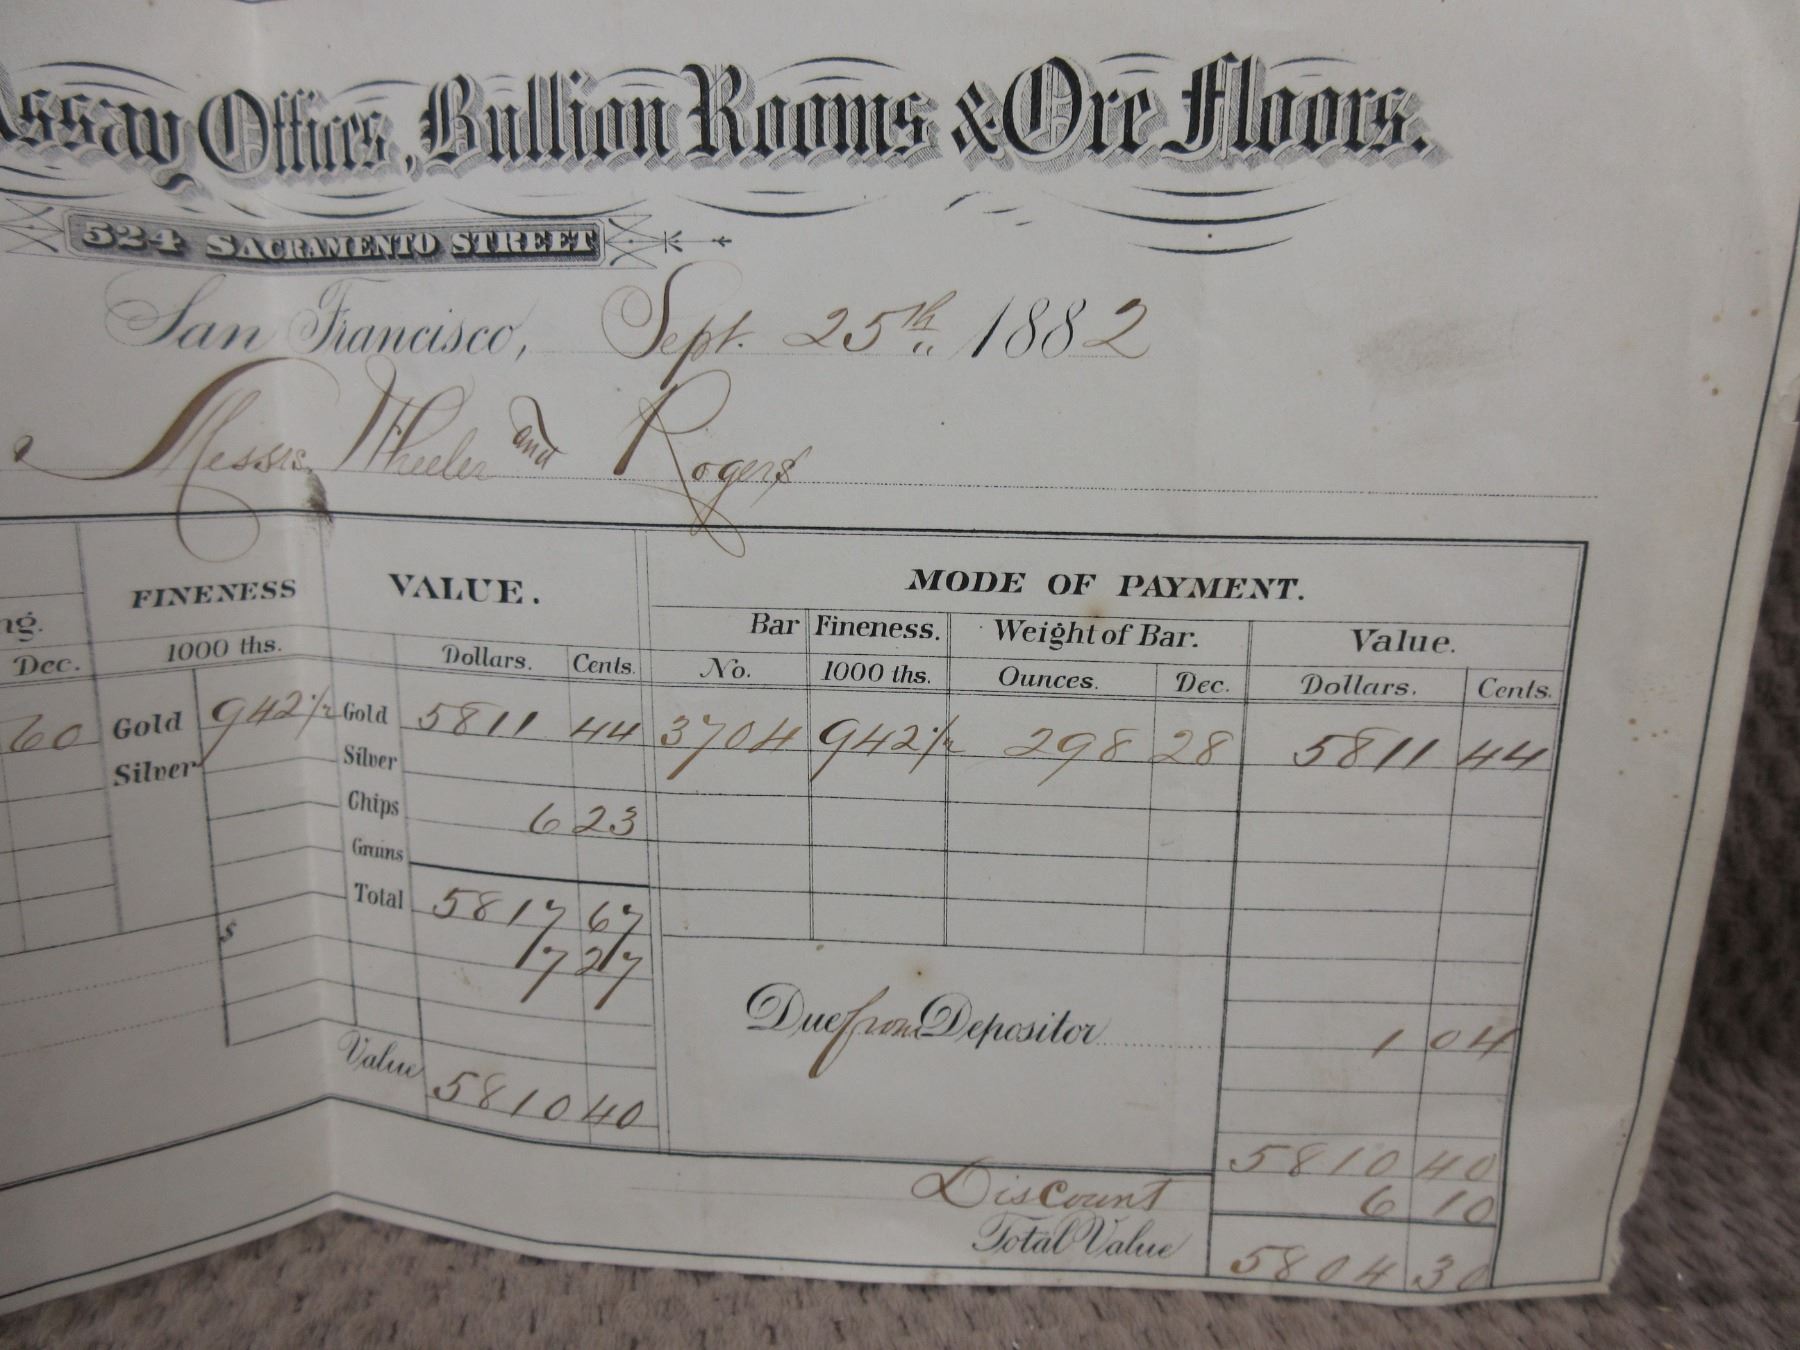 Assay Offices, Bullion Rooms & Ore Floors.
524 SACRAMENTO STREET
San Francisco, Sept. 25th 1882
Messrs. Wheeler and Rogers
FINENESS VALUE. MODE OF PAYMENT.
ng. 1000 ths. Bar Fineness. Weight of Bar. Value.
Dec. Dollars. Cents. No. 1000 ths. Ounces. Dec. Dollars. Cents.
60 Gold 942½ Gold 5811 44 3704 942½ 298 28 5811 44
Silver Silver
Chips 6 23
Grains
Total 5817 67
$ 7 27
Due from Depositor 1 04
Value 5810 40
5810 40
Discount 6 10
Total Value 5804 30